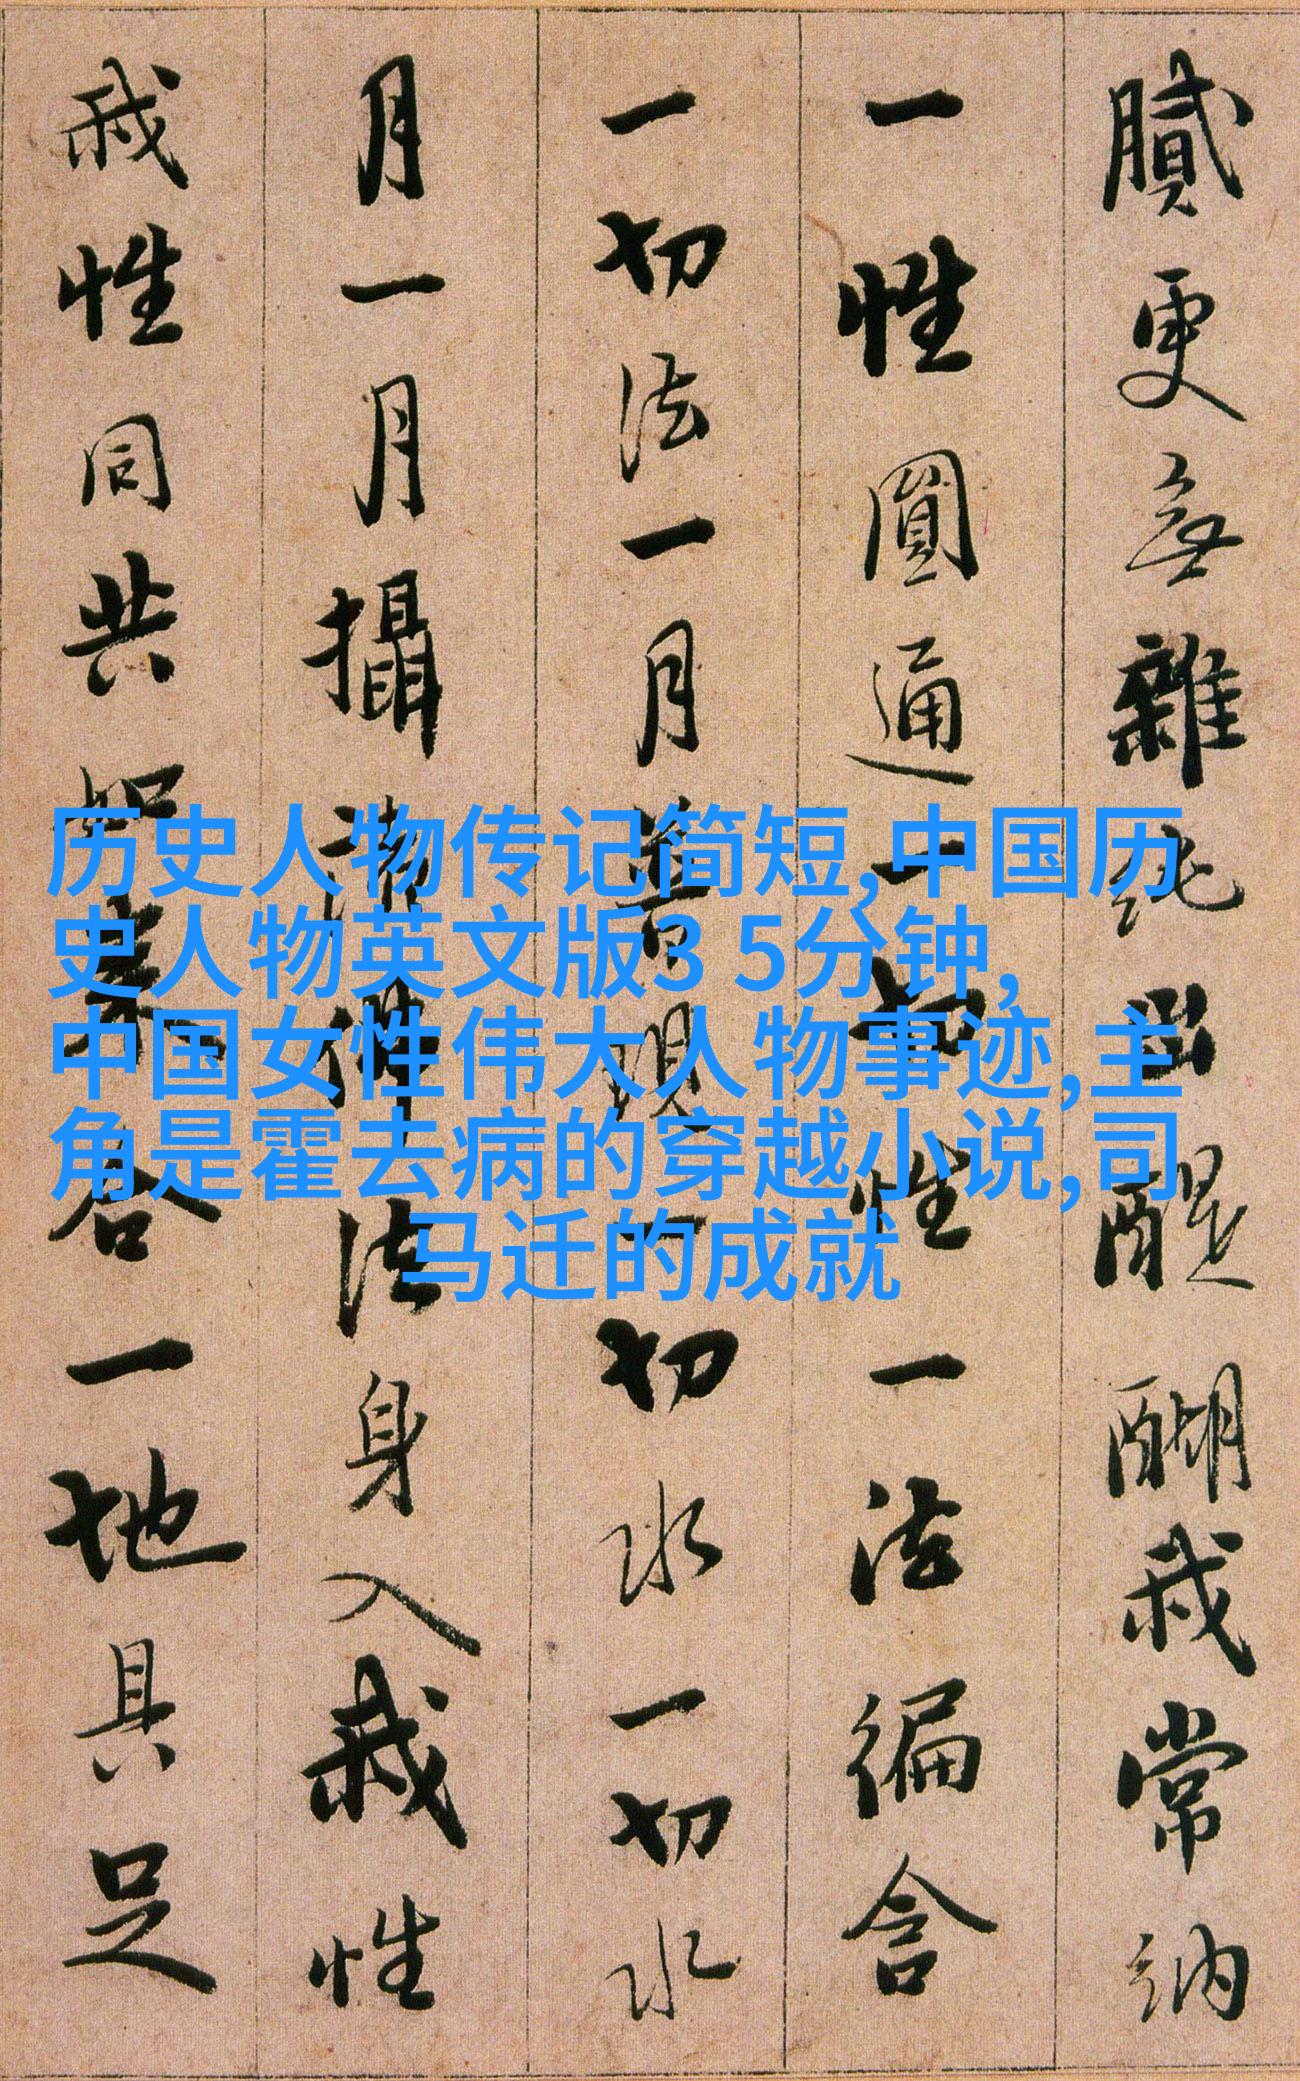 膩更無雜純出醍醐我常納
一性圓通一切性一法徧含
一切法一月普現一切水一切水
月一月攝諸佛法身入我性
我性同共如來合一地具足
历史人物传记简短,中国历
史人物英文版3 5分钟,
中国女性伟大人物事迹,主
角是霍去病的穿越小说,司
马迁的成就